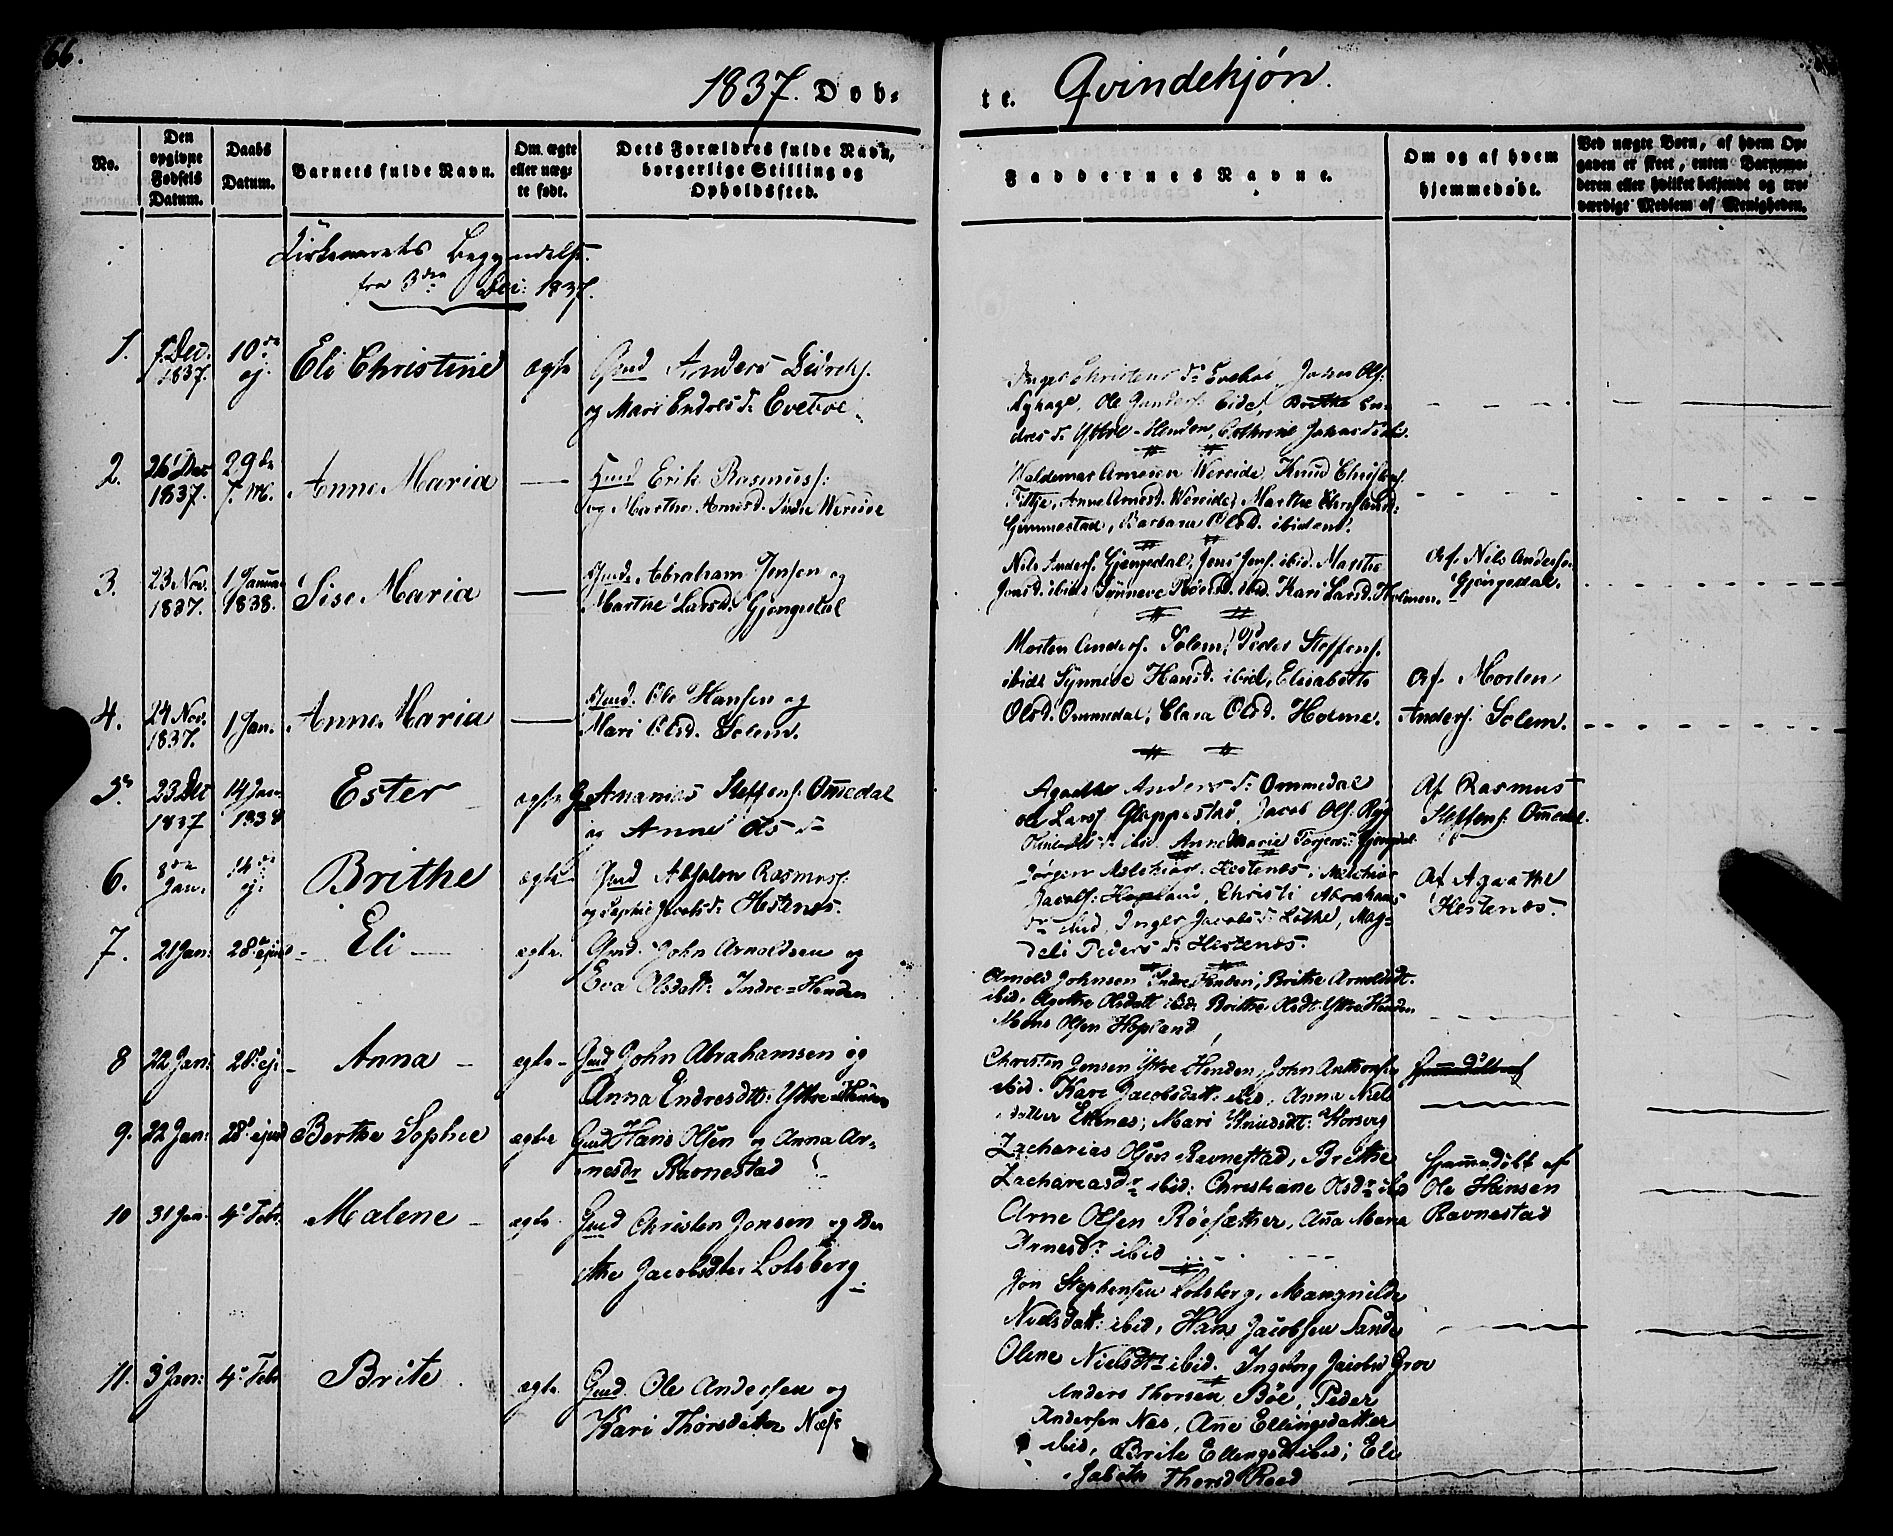 66.
1837. Døb-
te. Qvindekjøn.
No.
Den
opgivne
Fødsels
Datum.
Daabs
Datum.
Barnets fulde Navn.
Om ægte
eller uæg-
te født.
Dets Forældres fulde Navn,
borgerlige Stilling og
Opholdssted.
Faddernes Navne.
Om og af hvem
hjemmedøbt.
Ved uægte Børn, af hvem Op-
gaven er skeet, enten Barnemo-
deren eller hvilket bekjendt og tro-
værdigt Medlem af Menigheden.
Kirkeaarets Begyndelse
fra 3den Dec: 1837.
1.
Dec.
1837.
10de
ej.
Eli Christine
ægte
Gmd Anders Didriks.
og Mari Endresd. Evebøe.
Ole Gunders. Eide, Brithe En-
dresd. Ytre-Henden, Cathrine
2.
26 Dec
1837.
29de
Anne Maria
Gmd Erik Rasmuss:
og Marthe Arnesd. Indre Wereide
Waldemar Arnesen Wereide, Knud Christens.
Anne Arnesd. Wereide, Marthe
Gimmestad, Barbara Olsd. ibidem.
3.
23 Nov.
1837.
1 Januar
1838.
Sise Maria
Gmd. Abraham Jensen og
Marthe Larsd. Gjengedal
Nils Anders. Gjengedal, Jens Jens. ibid. Marthe
Jensd. ibid. Synneve ibid. Kari Larsd. Holmen.
Af Nils Anders.
Gjengedal.
4.
24 Nov.
1837.
1 Jan.
Anne Maria
Gmd. Ole Hansen og
Mari Olsd. Solem.
Morten Anders. Solem, Peder Steffens.
ibid. Synneve Hansd. ibid, Elisabeth
Olsd. Ommedal, Clara Olsd. Holme.
Af Morten
Anders. Solem.
5.
23 Dec
1837
14 Jan
1838
Ester
ægte
G. Ananias Steffens. Ommedal
og Anne Ols d.
Agathe Anders d. Ommedal
Ole Lars. Gloppestad, Jacob Ols. Ryg
ibid. Anne Marie Torgers: Gjengedal
Af Rasmus
Steffens. Ommedal.
6.
8de
Jan.
14de
ej.
Brithe
ægte
Gmd Absalon Rasmus.
og Sophie Jacobs d. Hestenes.
Jørgen Melchior. Hestenes, Melchior
Jacobs. Hopland, Christi Abrahams
d. ibid, Inger Jacobs d. Lothe, Mag-
deli Peders d. Hestenes.
Af Agathe
Hestenes.
7.
21 Jan:
28d ejusd
Eli
ægte.
Gmd. John Arnoldsen og
Eva Olsdatt: Indre-Henden
Arnold Johnsen Indre Henden, Brithe Arnoldsdt.
ibid, Agathe Olsdatt ibid, Brithe Olsdt. Ytre Henden
Mons Olsen Hopland
8
22 Jan:
28d ej:
Anna
ægte
Gmd John Abrahamsen og
Anna Endresdtt: Ytre Henden
Christen Jensen Ytre Henden, John Anthons.
ibid. Kari Jacobsdatt. ibid, Anna Niels
datter Ettenes; Mari Knudsdt: Horsveg
9.
22 Jan:
28d ejusd
Berthe Sophie
ægte
Gmd Hans Olsen og Anna Ar-
nesdr Ravnestad
Zacharias Olsen Ravnestad, Brithe
Zachariasdr ibid: Christiane Olsdr ibid
Arne Olsen Røesæther, Anna Maria
Arnesdr ibid
Hjemmedøbt af
Ole Hansen
Ravnestad
10
31 Jan.
4d Febr.
Malene
ægte.
Gmd Christen Jonsen og Ber
the Jacobsdtr Lotsberg
Jon Stephensen Lotsberg, Mangnilde
Nielsdatt: ibid, Hans Jacobsen Sande
Olene Nielsdtt ibid. Ingeborg Jacobsd Grov
11.
3 Jan:
4d Febr
Brite
ægte
Gmd. Ole Andersen og
Kari Thorsdatter Næss
Anders Thorsen Bøe, Peder
Andersen Næs, Ane Ellingsdatter
ibid, Brite Ellingsd ibid; Eli-
sabeth Thorsd Roed